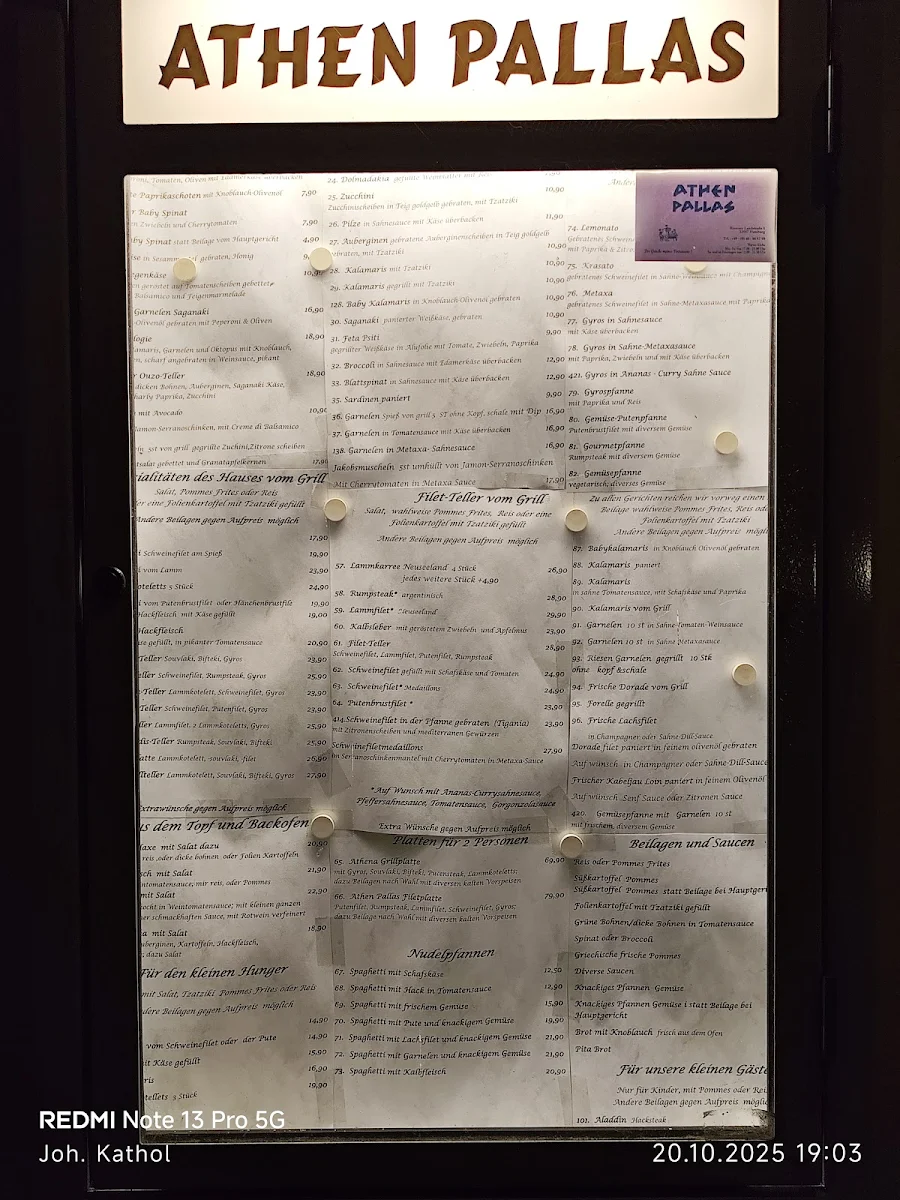 ATHEN PALLAS
ATHEN
PALLAS
Paprikaschoten mit Knoblauch-Olivenöl 7,90
Baby Spinat
Zwiebeln und Cherrytomaten 7,90
Spinat statt Beilage vom Hauptgericht 4,90
gebraten, Honig
gebettet auf Tomatenscheiben gebettet
Balsamico und Feigenmarmelade
Garnelen Saganaki 16,90
Olivenöl gebraten mit Peperoni & Oliven
18,90
Garnelen und Oktopus mit Knoblauch,
scharf angebraten in Weinsauce, pikant
Ouzo-Teller 18,90
dicken Bohnen, Auberginen, Saganaki Käse,
Paprika, Zucchini
mit Avocado 10,90
Jamon-Serranoschinken, mit Creme di Balsamico
5st vom grill gegrillte Zuchini, Zitrone scheiben
gebettet und Granatapfelkernen 17,90
24. Dolmadakia
25. Zucchini 10,90
Zucchinischeiben in Teig goldgelb gebraten, mit Tzatziki
26. Pilze in Sahnesauce mit Käse überbacken 11,90
27. Auberginen gebratene Auberginenscheiben in Teig goldgelb
gebraten, mit Tzatziki 10,90
28. Kalamaris mit Tzatziki 10,90
29. Kalamaris gegrillt mit Tzatziki 10,90
128. Baby Kalamaris in Knoblauch-Olivenöl gebraten 10,90
30. Saganaki panierter Weißkäse, gebraten 9,90
31. Feta Psiti
gegrillter Weißkäse in Alufolie mit Tomate, Zwiebeln, Paprika
32. Broccoli in Sahnesauce mit Edamerkäse überbacken 12,90
33. Blattspinat in Sahnesauce mit Käse überbacken 12,90
35. Sardinen paniert 9,90
36. Garnelen Spieß von grill 5 ST ohne Kopf, schale mit Dip 16,90
37. Garnelen in Tomatensauce mit Käse überbacken 16,90
138. Garnelen in Metaxa- Sahnesauce 16,90
Jakobsmuscheln 5st umhüllt von Jamon-Serranoschinken
Mit Cherrytomaten in Metaxa Sauce 17,90
74. Lemonato
75. Krasato
gebratenes Schweinefilet in Sahne-Weinsauce mit
76. Metaxa
gebratenes Schweinefilet in Sahne-Metaxasauce mit Paprika
77. Gyros in Sahnesauce
mit Käse überbacken
78. Gyros in Sahne-Metaxasauce
mit Paprika, Zwiebeln und mit Käse überbacken
421. Gyros in Ananas - Curry Sahne Sauce
79. Gyrospfanne
mit Paprika und Reis
80. Gemüse-Putenpfanne
Putenbrustfilet mit diversem Gemüse
81. Gourmetpfanne
Rumpsteak mit diversem Gemüse
82. Gemüsepfanne
vegetarisch, diverses Gemüse
ialitäten des Hauses vom Grill
Salat, Pommes Frites oder Reis
er eine Folienkartoffel mit Tzatziki gefüllt
Andere Beilagen gegen Aufpreis möglich
17,90
Schweinefilet am Spieß 19,90
vom Lamm 23,90
oteletts 5 Stück 24,90
vom Putenbrustfilet oder Hänchenbrustfile 19,90
Hackfleisch mit Käse gefüllt 19,00
Hackfleisch
se gefüllt, in pikanter Tomatensauce 20,90
Teller Souvlaki, Bifteki, Gyros 23,90
eller Schweinefilet, Rumpsteak, Gyros 25,90
-Teller Lammkotelett, Schweinefilet, Gyros 23,90
Teller Schweinefilet, Putenfilet, Gyros 23,90
ller Lammfilet, 2 Lammkoteletts, Gyros 25,90
dis-Teller Rumpsteak, Souvlaki, Bifteki 25,90
latte Lammkotelett, souvlaki, filet 26,90
lteller Lammkotelett, Souvlaki, Bifteki, Gyros 27,90
Extrawünsche gegen Aufpreis möglich
Filet-Teller vom Grill
Salat, wahlweise Pommes Frites, Reis oder eine
Folienkartoffel mit Tzatziki gefüllt
Andere Beilagen gegen Aufpreis möglich
57. Lammkarree Neuseeland 4 Stück 26,90
jedes weitere Stück +4,90
58. Rumpsteak* argentinisch 28,90
59. Lammfilet* Neuseeland 29,90
60. Kalbsleber mit geröstetem Zwiebeln und Apfelmus 23,90
61. Filet-Teller 28,90
Schweinefilet, Lammfilet, Putenfilet, Rumpsteak
62. Schweinefilet gefüllt mit Schafskäse und Tomaten 24,90
63. Schweinefilet* Medaillons 24,90
64. Putenbrustfilet * 23,90
414 Schweinefilet in der Pfanne gebraten (Tigania) 23,90
mit Zitronenscheiben und mediterranen Gewürzen
Schweinefiletmedaillons 27,90
im Serranoschinkenmantel mit Cherrytomaten in Metaxa-Sauce
*Auf Wunsch mit Ananas-Currysahnesauce,
Pfeffersahnesauce, Tomatensauce, Gorgonzolasauce
Extra Wünsche gegen Aufpreis möglich
Zu allen Gerichten reichen wir vorweg einen
Beilage wahlweise Pommes Frites, Reis od
Folienkartoffel mit Tzatziki
Andere Beilagen gegen Aufpreis mögl
87. Babykalamaris in Knoblauch Olivenöl gebraten
88. Kalamaris paniert
89. Kalamaris
in sahne Tomatensauce, mit Schafskäse und Paprika
90. Kalamaris vom Grill
91. Garnelen 10 st in Sahne-Tomaten-Weinsauce
92. Garnelen 10 st in Sahne Metaxasauce
93. Riesen Garnelen gegrillt 10 Stk
ohne kopf &schale
94. Frische Dorade vom Grill
95. Forelle gegrillt
96. Frische Lachsfilet
in Champagner oder Sahne-Dill-Sauce
Dorade filet paniert in feinem olivenöl gebraten
Auf wünsch in Champagner oder Sahne-Dill-Sauce
Frischer Kabeljau Loin paniert in feinem Olivenöl
Auf wünsch Senf Sauce oder Zitronen Sauce
420. Gemüsepfanne mit Garnelen 10 st
mit frischem, diversem Gemüse
us dem Topf und Backofen
laxe mit Salat dazu 20,90
reis ,oder dicke bohnen oder Folien Kartoffeln
sch mit Salat 21,90
intomatensauce; mir reis, oder Pommes
mit Salat 22,90
ocht in Weintomatensauce; mit kleinen ganzen
er schmackhaften Sauce, mit Rotwein verfeinert
a mit Salat 18,90
uberginen, Kartoffeln, Hackfleisch,
dazu Salat
Für den kleinen Hunger
mit Salat, Tzatziki Pommes Frites oder Reis
dere Beilagen gegen Aufpreis möglich
14,90
vom Schweinefilet oder der Pute 14,90
15,90
it Käse gefüllt 16,90
ris 19,90
tellets 3 Stück
Platten für 2 Personen
65. Athena Grillplatte 69,90
mit Gyros, Souvlaki, Bifteki, Putensteak, Lammkoteletts;
dazu Beilagen nach Wahl mit diversen kalten Vorspeisen
66. Athen Pallas Filetplatte 79,90
Putenfilet, Rumpsteak, Lammfilet, Schweinefilet, Gyros;
dazu Beilage nach Wahl mit diversen kalten Vorspeisen
Nudelpfannen
67. Spaghetti mit Schafskäse 12,50
68. Spaghetti mit Hack in Tomatensauce 12,90
69. Spaghetti mit frischem Gemüse 15,90
70. Spaghetti mit Pute und knackigem Gemüse 19,90
71. Spaghetti mit Lachsfilet und knackigem Gemüse 21,90
72. Spaghetti mit Garnelen und knackigem Gemüse 21,90
73. Spaghetti mit Kalbfleisch 20,90
Beilagen und Saucen
Reis oder Pommes Frites
Süßkartoffel Pommes
Süßkartoffel Pommes statt Beilage bei Hauptgeri
Folienkartoffel mit Tzatziki gefüllt
Grüne Bohnen/dicke Bohnen in Tomatensauce
Spinat oder Broccoli
Griechische frische Pommes
Diverse Saucen
Knackiges Pfannen Gemüse
Knackiges Pfannen Gemüse i statt Beilage bei
Hauptgericht
Brot mit Knoblauch frisch aus dem Ofen
Pita Brot
Für unsere kleinen Gäste
Nur für Kinder, mit Pommes oder Rei
Andere Beilagen gegen Aufpreis mögli
101. Aladdin Hacksteak
REDMI Note 13 Pro 5G
Joh. Kathol
20.10.2025 19:03